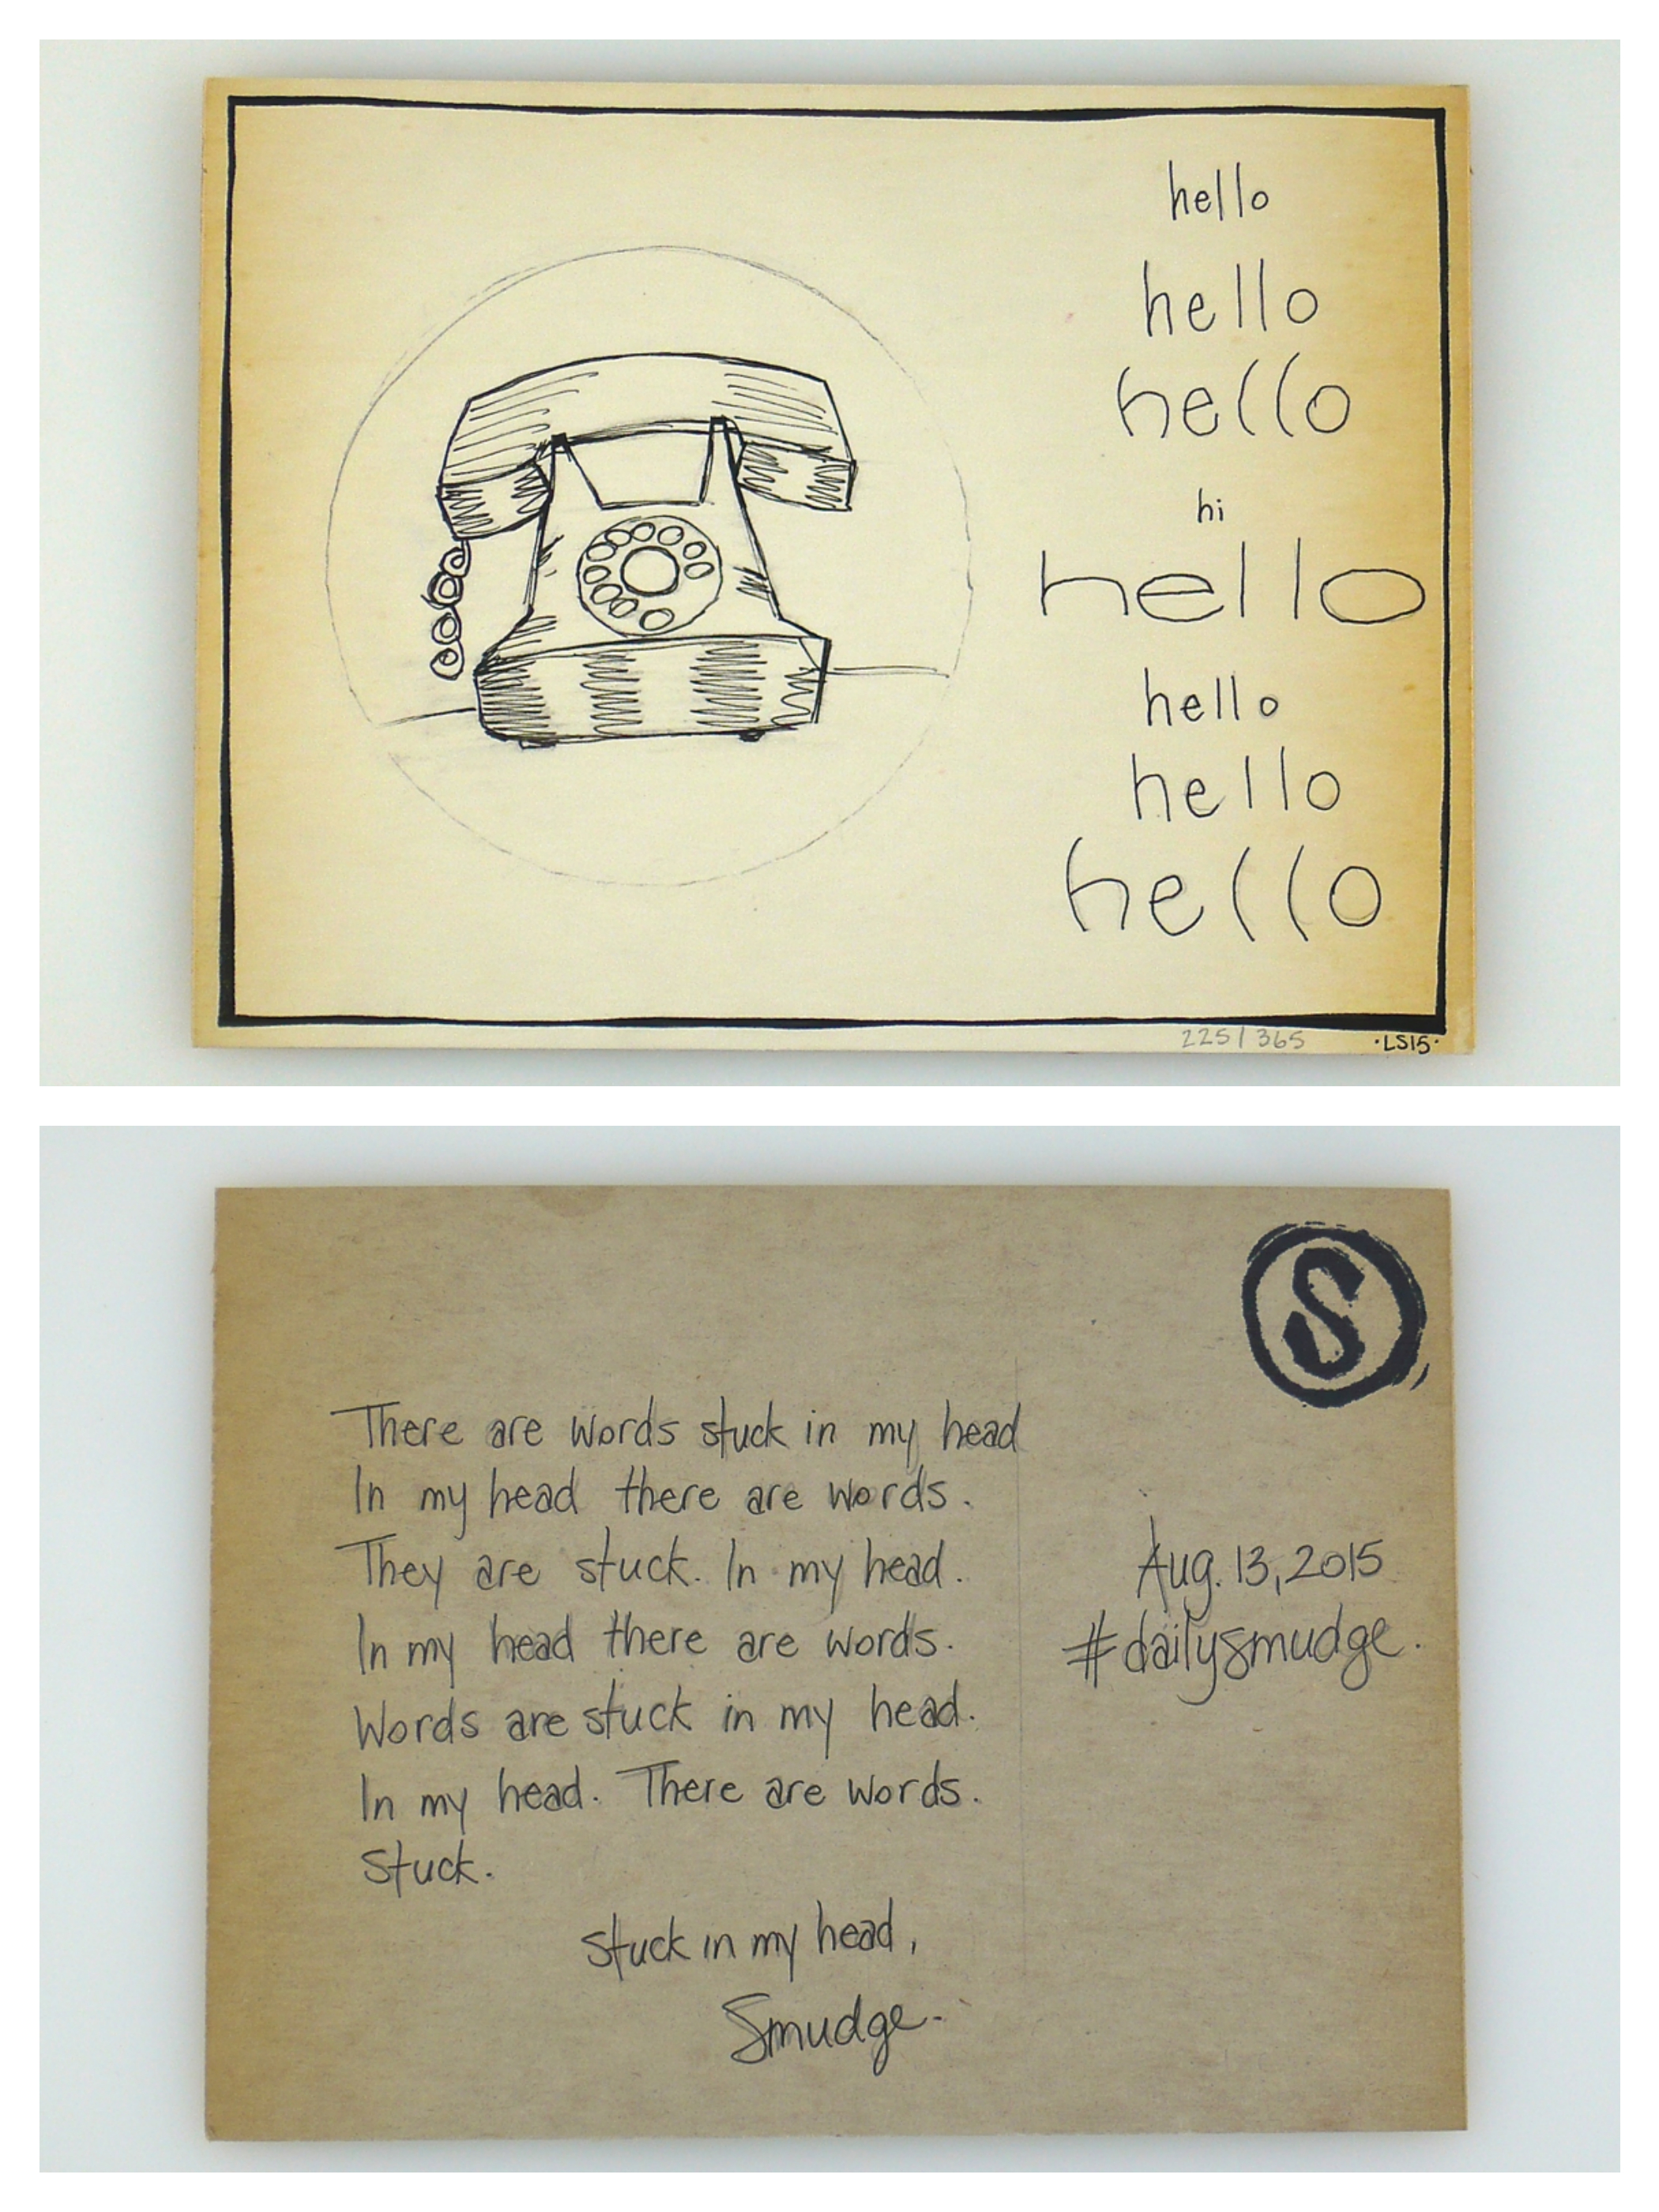 hello
hello
hello
hi
hello
hello
hello
hello
225/365
·LS15·
S
There are words stuck in my head
In my head there are words.
They are stuck. In my head.
In my head there are words.
Words are stuck in my head.
In my head. There are words.
Stuck.
Stuck in my head,
Smudge.
Aug. 13, 2015
#dailysmudge.